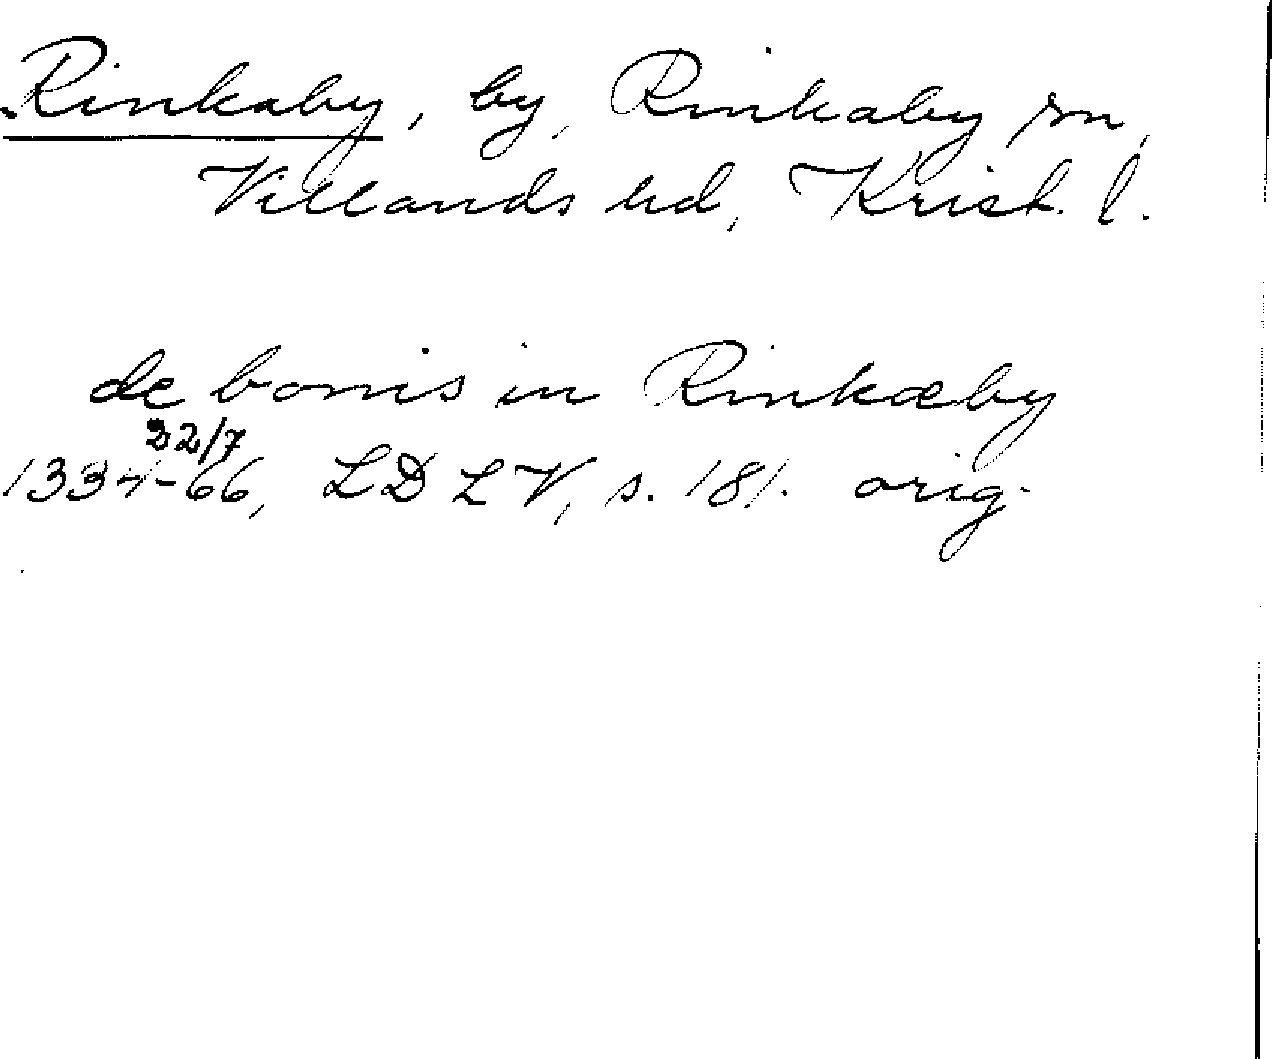 Rinkaby, by, Rinkaby sn,
Villands hd, Krist. l.
de bonis in Rinkæby
22/7
1334-66, LD LV, s. 181. orig.